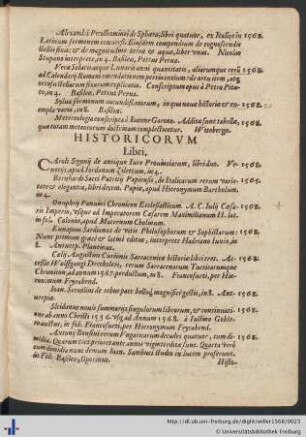 Alexandri Piccolominei de Sphæra, libri quatuor, ex Italico in 1568.
Latinum sermonem conuersi. Eiusdem compendium de cognoscendis
stellis fixis: & de magnitudine terræ & aquæ, liber vnus. Nicolao
Stupano interprete, in 4. Basileæ, Petrus Perna.
Vera Solaris atque Lunaris anni quantitatis, aliarumque rerū 1568.
ad Calendarij Romani emendationem pertinentium
in 4. Basileæ, Petrus Perna.
Sylua sermonum iucundissimorum, in qua nouæ historiæ & ex- 1568.
empla varia, in 8. Basileæ.
Meteorologia conscripta à Ioanne Garcæo. Addita sunt tabellæ, 1568.
quæ totam meteororum doctrinam complectuntur. Witebergæ.
HISTORICORVM
Libri.
CAroli Sigonij de antiquo Iure Prouinciarum, libri duo. Ve- 1568.
netijs, apud Iordanum Zilettum, in 4.
Bernardo Sacci Patritij Papiensis, de Italicarum rerum varie- 1565.
tate & elegantia, libri decem. Papiæ, apud Hieronymum Bartholum.
in 4.
Onuphrij Panuini Chronicon Ecclesiasticum. A C. Iulij Cæsa- 1568.
ris Imperio, vsque ad Imperatorem Cæsarem Maximilianum II. lat.
in fol. Coloniæ, apud Maternum Cholinum.
Eunapius Sardianus de vitis Philosophorum & Sophistarum: 1568.
Nunc primum græcè & latinè editus, interprete Hadriano Iunio, in
8. Antuerp. Plantinus.
Cælij Augustini Curionis Sarracenicæ historiæ libri tres. Ac- 1568.
cessit Wolfgangi Drechsleri, rerum Sarracenarum Turcicarumque
Chronicon, ad annum 1567. perductum, in 8. Francofurti, per
Ioan. Seruilius de rebus pace belloq́ magnificè gestis, in 8. Ant- 1568.
uerpiæ.
Sleidanus nouis summarijs singulorum librorum, & continuatio- 1568.
ne ab anno Christi 1556. vsq́ ad Annum 1568. à Iustino Goble-
ro auctus, in fol. Francofurti, per Hieronymum Feyrabend.
Antonij Bonfinij rerum Vngaricarum decades quatuor, cum di- 1568.
midia. Quarum tres priores ante annos viginti editæ sunt: Quarta verò
cum dimidia nunc demum Ioan. Sambuci studio in lucem proferunt.
in Fol. Basileæ, Oporinus.
Histo-
http://dl.ub.uni-freiburg.de/diglit/willer1568/0023
© Universitätsbibliothek Freiburg